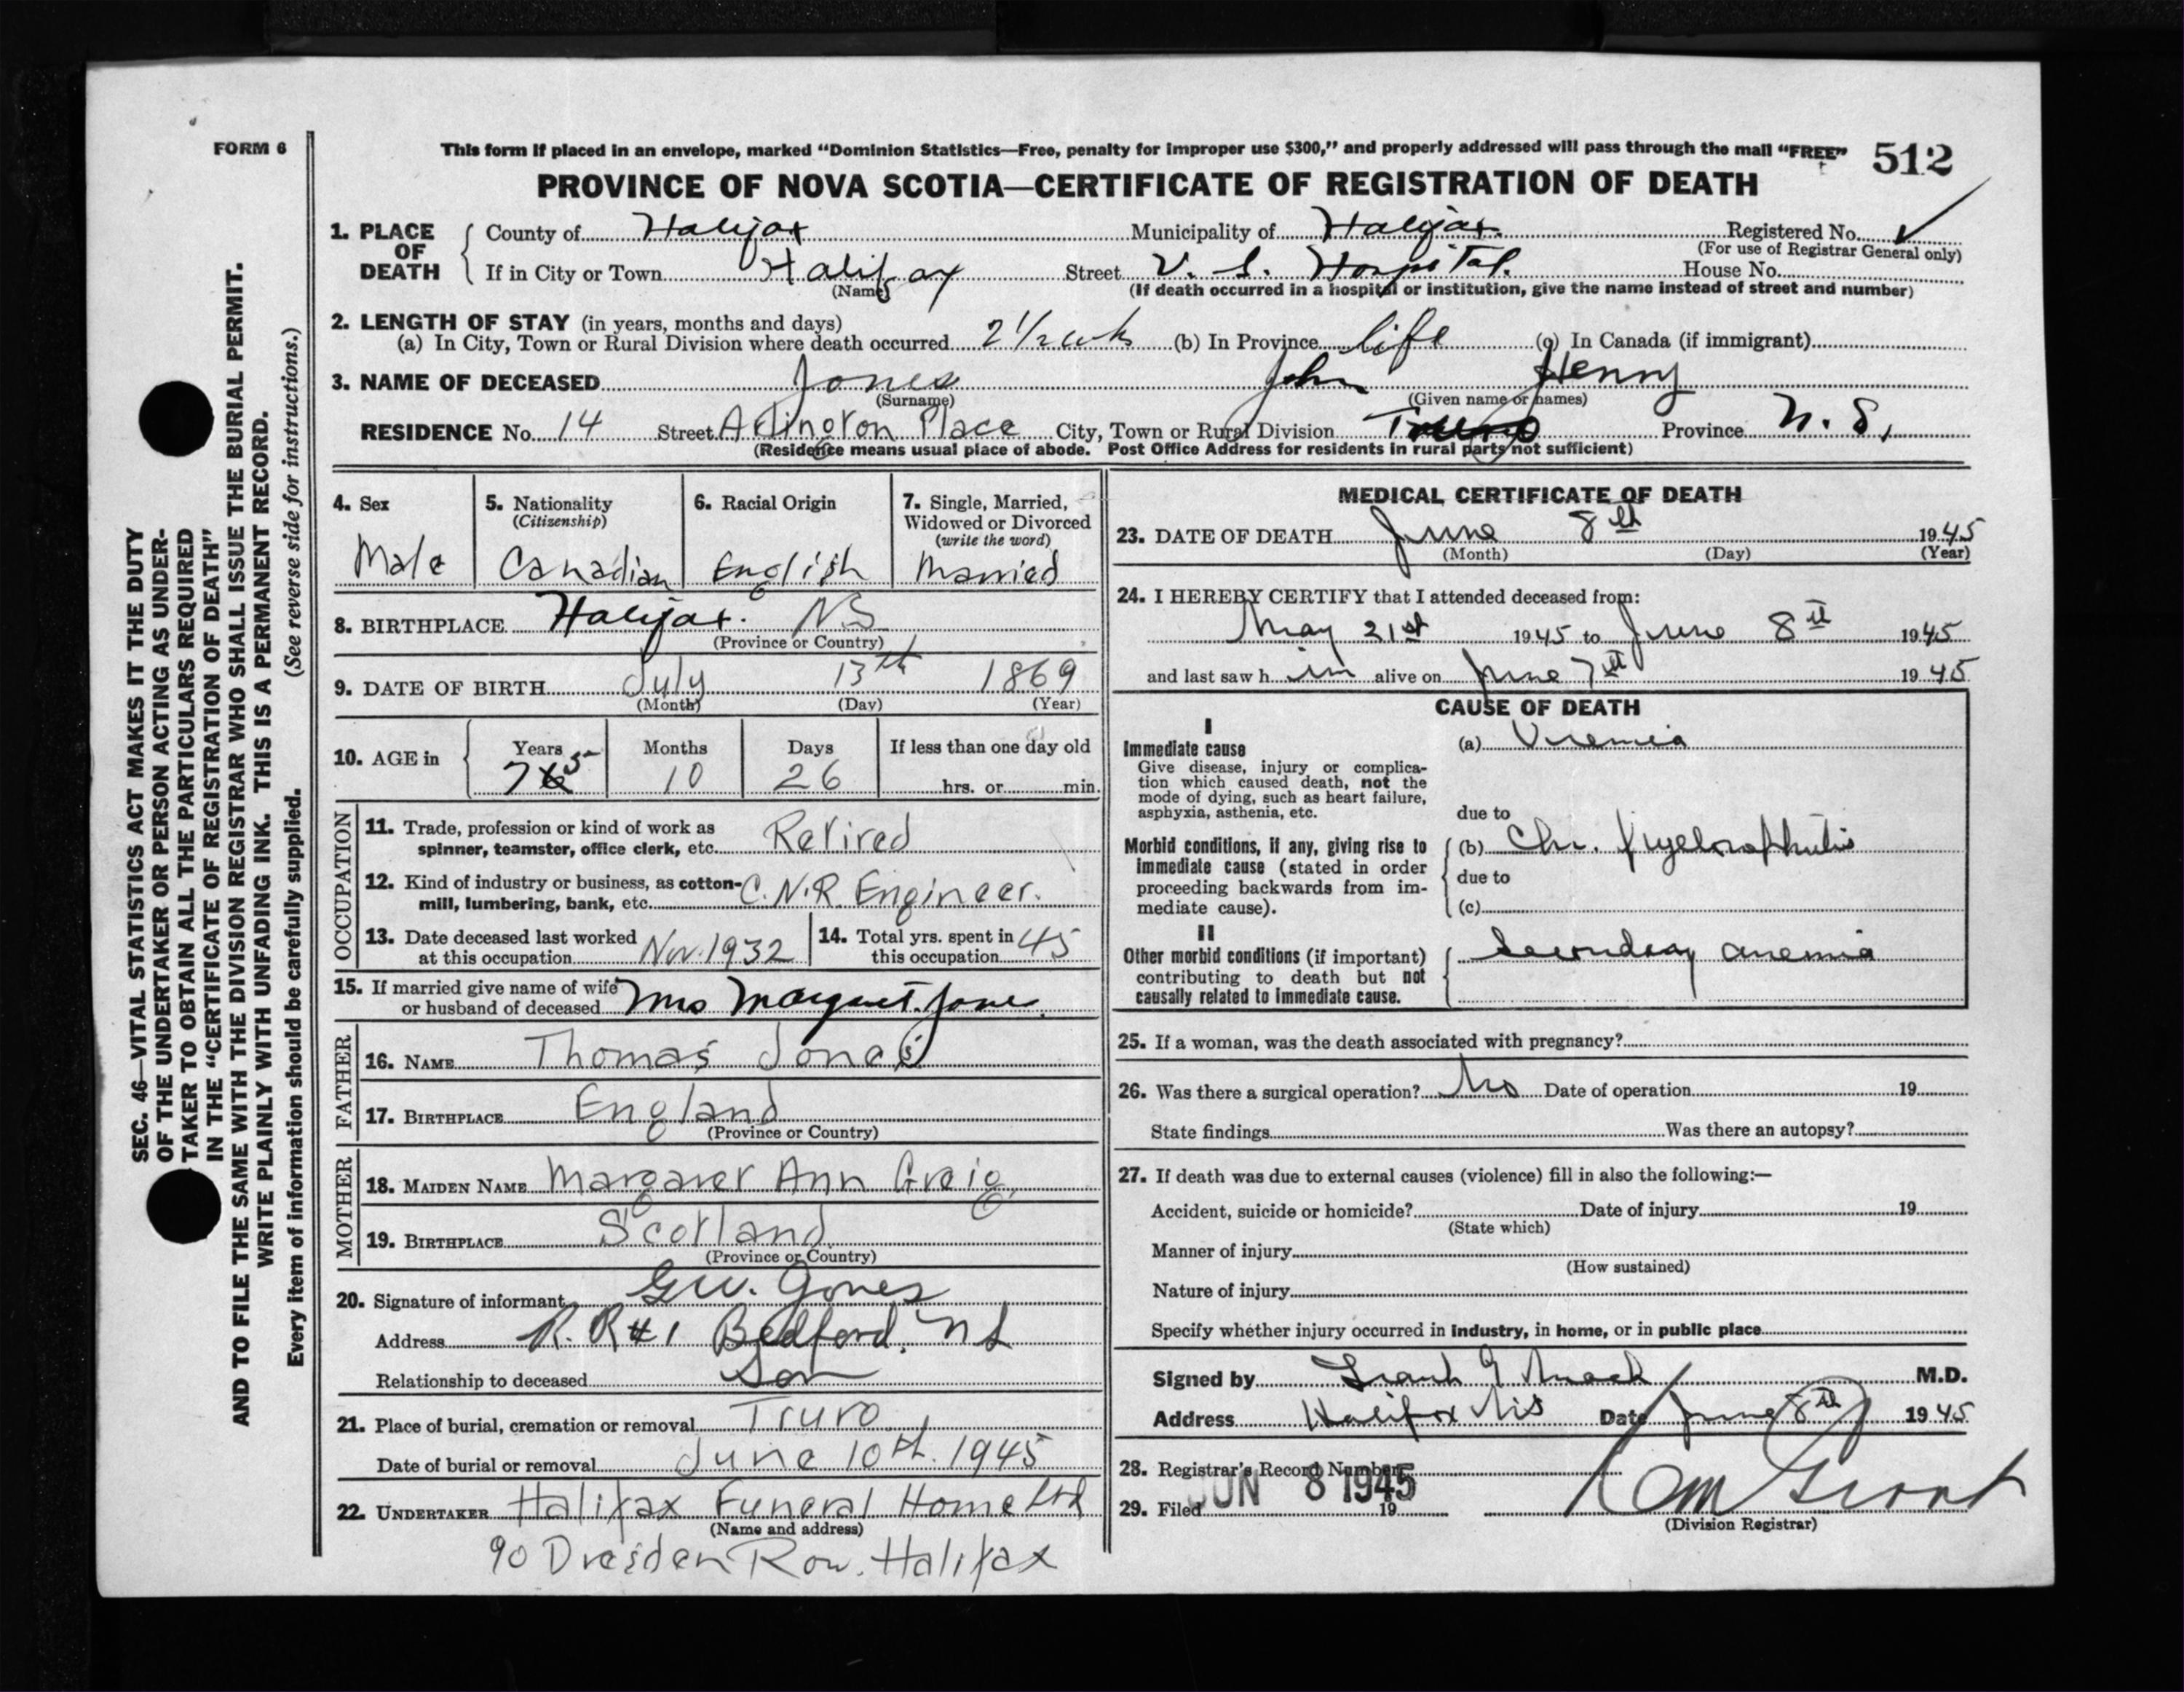 FORM 6
This form if placed in an envelope, marked "Dominion Statistics—Free, penalty for improper use $300," and properly addressed will pass through the mail "FREE" 512
PROVINCE OF NOVA SCOTIA—CERTIFICATE OF REGISTRATION OF DEATH
SEC. 46—VITAL STATISTICS ACT MAKES IT THE DUTY
OF THE UNDERTAKER OR PERSON ACTING AS UNDER-
TAKER TO OBTAIN ALL THE PARTICULARS REQUIRED
IN THE "CERTIFICATE OF REGISTRATION OF DEATH"
AND TO FILE THE SAME WITH THE DIVISION REGISTRAR WHO SHALL ISSUE THE BURIAL PERMIT.
WRITE PLAINLY WITH UNFADING INK. THIS IS A PERMANENT RECORD.
Every item of information should be carefully supplied. (See reverse side for instructions.)
1. PLACE OF DEATH County of Halifax Municipality of Halifax Registered No.
(For use of Registrar General only)
If in City or Town Halifax Street V. G. Hospital House No.
(Name) (If death occurred in a hospital or institution, give the name instead of street and number)
2. LENGTH OF STAY (in years, months and days)
(a) In City, Town or Rural Division where death occurred 2 1/2 wks (b) In Province life (c) In Canada (if immigrant)
3. NAME OF DECEASED Jones John Henry
(Surname) (Given name or names)
RESIDENCE No. 14 Street Arlington Place City, Town or Rural Division Truro Province N. S.
(Residence means usual place of abode. Post Office Address for residents in rural parts not sufficient)
4. Sex
Male
5. Nationality
(Citizenship)
Canadian
6. Racial Origin
English
7. Single, Married,
Widowed or Divorced
(write the word)
Married
8. BIRTHPLACE Halifax. NS
(Province or Country)
9. DATE OF BIRTH July 13th 1869
(Month) (Day) (Year)
10. AGE in Years Months Days If less than one day old
75 10 26 hrs. or min.
OCCUPATION
11. Trade, profession or kind of work as
spinner, teamster, office clerk, etc. Retired
12. Kind of industry or business, as cotton-
mill, lumbering, bank, etc. C.N.R. Engineer.
13. Date deceased last worked
at this occupation Nov. 1932
14. Total yrs. spent in
this occupation 45
15. If married give name of wife
or husband of deceased Mrs Margaret Jones
FATHER
16. NAME Thomas Jones
17. BIRTHPLACE England
(Province or Country)
MOTHER
18. MAIDEN NAME Margaret Ann Greig
19. BIRTHPLACE Scotland
(Province or Country)
20. Signature of informant G W. Jones
Address R. R #1 Bedford, N S
Relationship to deceased Son
21. Place of burial, cremation or removal Truro
Date of burial or removal June 10th. 1945
22. UNDERTAKER Halifax Funeral Home Ltd
(Name and address)
90 Dresden Row. Halifax
MEDICAL CERTIFICATE OF DEATH
23. DATE OF DEATH June 8th 1945
(Month) (Day) (Year)
24. I HEREBY CERTIFY that I attended deceased from:
May 21st 1945 to June 8th 1945
and last saw h im alive on June 7th 1945
CAUSE OF DEATH
I
Immediate cause
Give disease, injury or complica-
tion which caused death, not the
mode of dying, such as heart failure,
asphyxia, asthenia, etc.
(a) Uremia
due to
Morbid conditions, if any, giving rise to
immediate cause (stated in order
proceeding backwards from im-
mediate cause).
(b) Chr. Pyelonephritis
due to
(c)
II
Other morbid conditions (if important)
contributing to death but not
causally related to immediate cause.
Secondary anemia
25. If a woman, was the death associated with pregnancy?
26. Was there a surgical operation? No Date of operation 19
State findings Was there an autopsy?
27. If death was due to external causes (violence) fill in also the following:—
Accident, suicide or homicide? Date of injury 19
(State which)
Manner of injury
(How sustained)
Nature of injury
Specify whether injury occurred in industry, in home, or in public place
Signed by Frank G Mack M.D.
Address Halifax NS Date June 8th 1945
28. Registrar's Record Number
29. Filed JUN 8 1945 19
(Division Registrar)